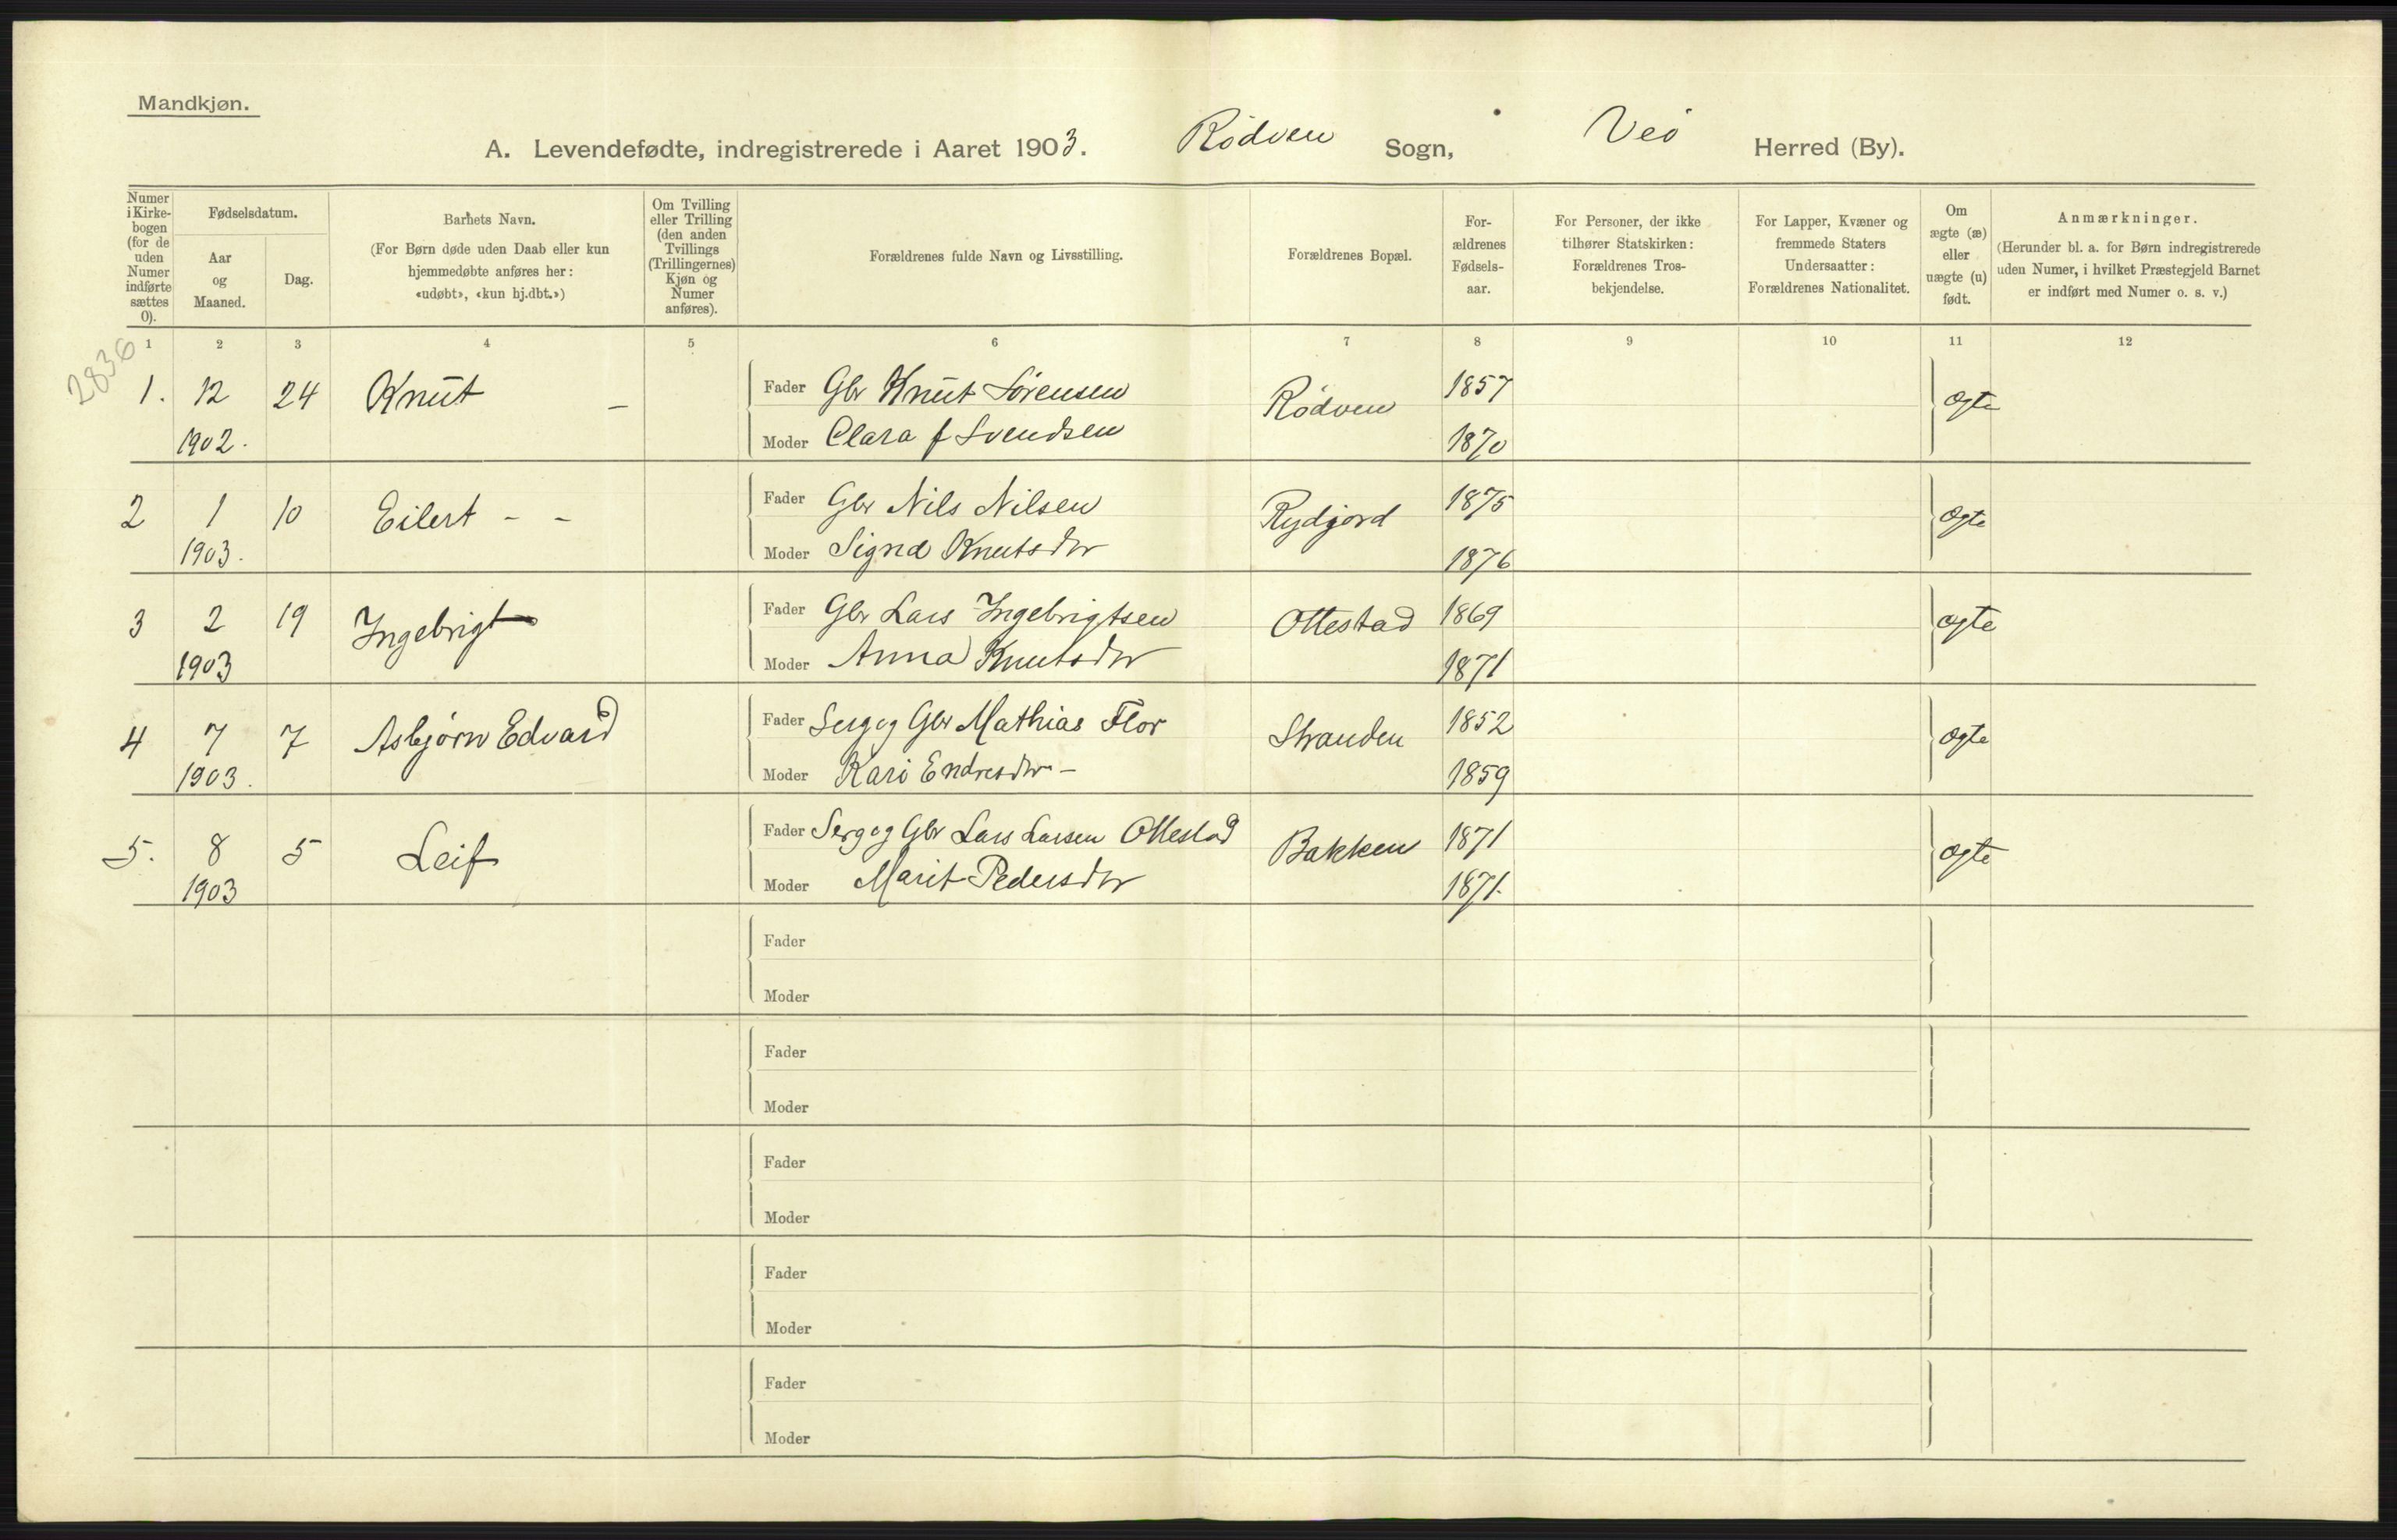 Mandkjøn.
A. Levendefødte, indregistrerede i Aaret 1903. Rødven Sogn, Veø Herred (By).
Numer i Kirke-bogen (for de uden Numer indførte sættes 0).
Fødselsdatum.
Aar og Maaned.
Dag.
Barnets Navn.
(For Børn døde uden Daab eller kun
hjemmedøbte anføres her:
«udøbt», «kun hj.dbt.»)
Om Tvilling
eller Trilling
(den anden
Tvillings
(Trillingernes)
Kjøn og
Numer
anføres).
Forældrenes fulde Navn og Livsstilling.
Forældrenes Bopæl.
For-
ældrenes
Fødsels-
aar.
For Personer, der ikke
tilhører Statskirken:
Forældrenes Tros-
bekjendelse.
For Lapper, Kvæner og
fremmede Staters
Undersaatter:
Forældrenes Nationalitet.
Om
ægte (æ)
eller
uægte (u)
født.
Anmærkninger.
(Herunder bl. a. for Børn indregistrerede
uden Numer, i hvilket Præstegjeld Barnet
er indført med Numer o. s. v.)
1 2 3 4 5 6 7 8 9 10 11 12
2836
1. 12 24 Knut - Fader Gbr Knut Sörensen Rödven 1857 ægte
1902. Moder Clara f Svendsen 1870
2 1 10 Eilert - - Fader Gbr Nils Nilsen Rydjord 1875 ægte
1903. Moder Signd Knutsdtr 1876
3 2 19 Ingebrigt Fader Gbr Lars Ingebrigtsen Ottestad 1869 ægte
1903 Moder Anna Knutsdtr 1871
4 7 7 Asbjørn Edvard Fader Serg og Gbr Mathias Flor Stranden 1852 ægte
1903. Moder Kari Endresdtr - 1859
5. 8 5 Leif Fader Serg og Gbr Lars Larsen Ottestad Bakken 1871 ægte
1903 Moder Marit Pedersdtr 1871.
Fader
Moder
Fader
Moder
Fader
Moder
Fader
Moder
Fader
Moder